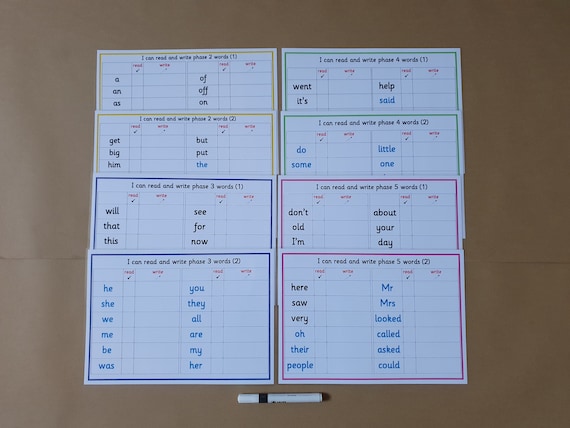 I can read and write phase 2 words (1)
read write read write
a of
an off
as on
I can read and write phase 2 words (2)
read write read write
get but
big put
him the
I can read and write phase 3 words (1)
read write read write
will see
that for
this now
I can read and write phase 3 words (2)
read write read write
he you
she they
we all
me are
be my
was her
I can read and write phase 4 words (1)
read write read write
went help
it's said
I can read and write phase 4 words (2)
read write read write
do little
some one
I can read and write phase 5 words (1)
read write read write
don't about
old your
I'm day
I can read and write phase 5 words (2)
read write read write
here Mr
saw Mrs
very looked
oh called
their asked
people could